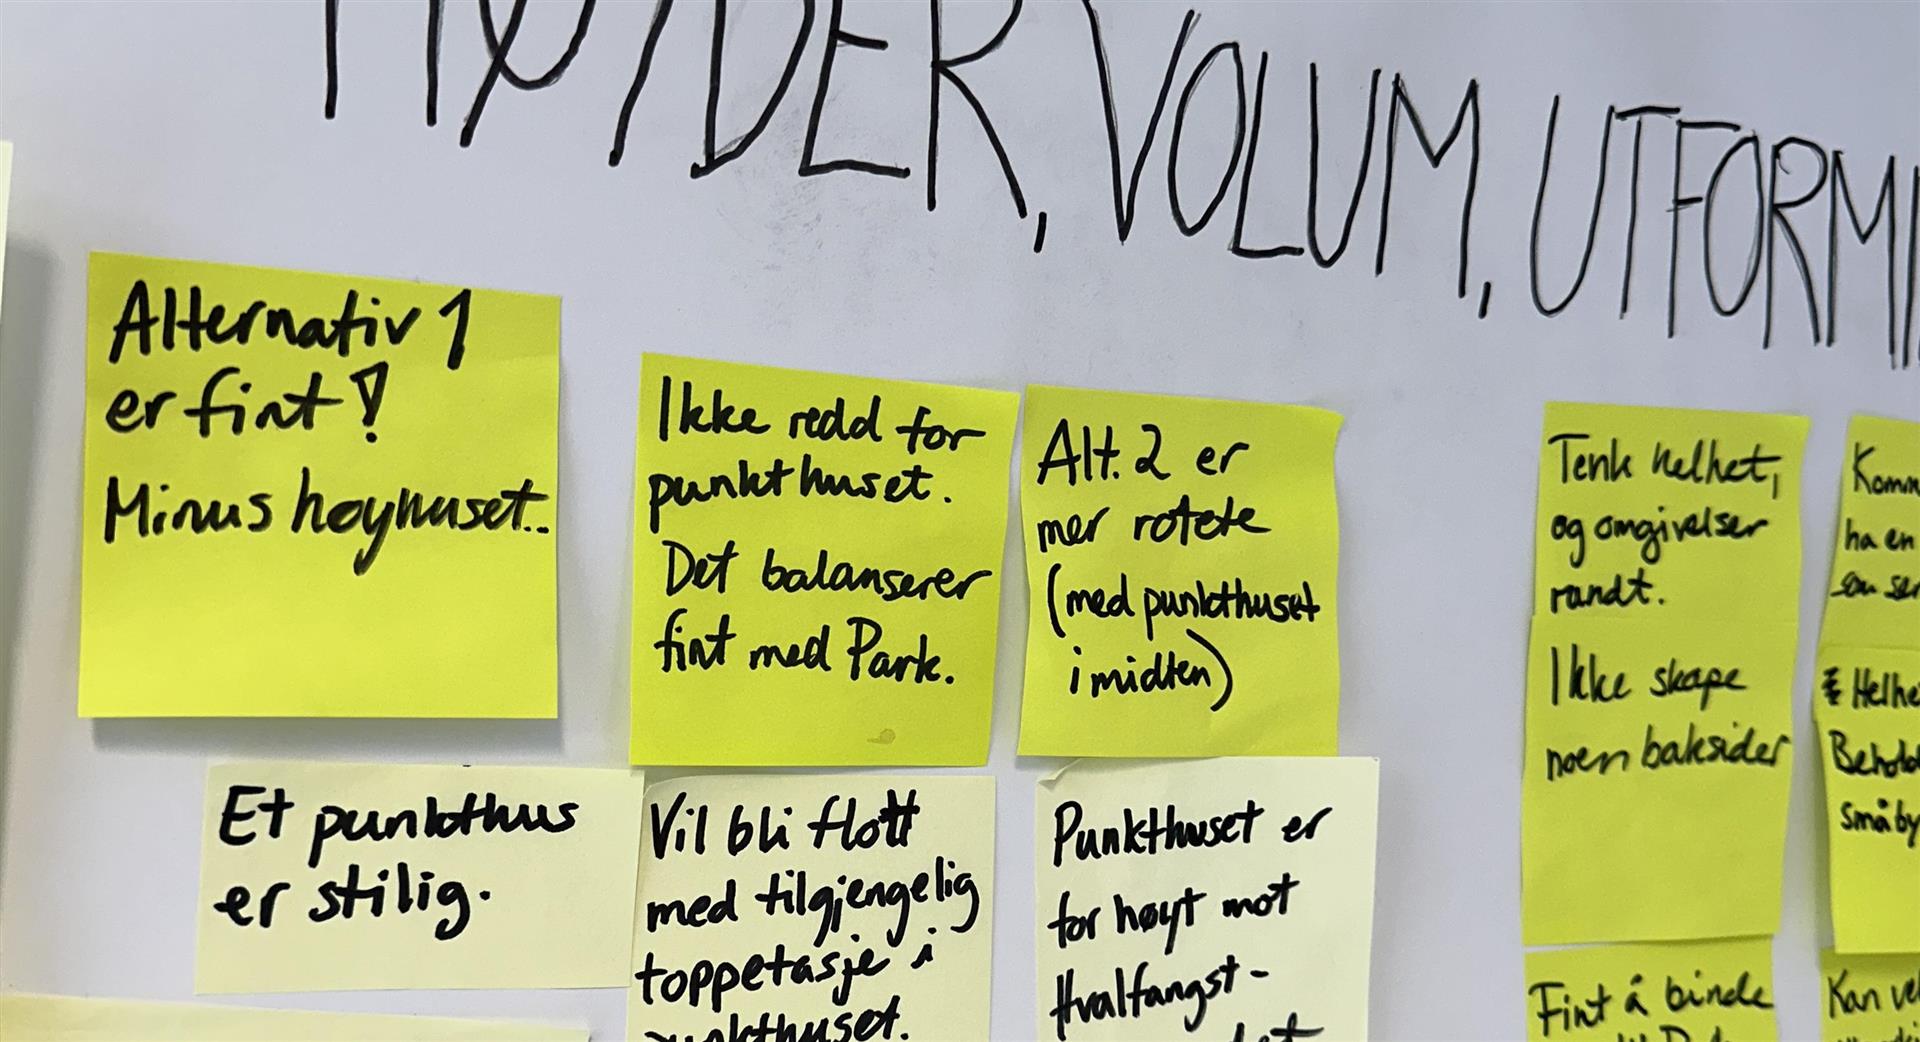 HØYDER, VOLUM, UTFORMI
Alternativ 1
er fint!
Minus høyhuset..
Ikke redd for
punkthuset.
Det balanserer
fint med Park.
Alt. 2 er
mer rotete
(med punkthuset
i midten)
Tenk helhet,
og omgivelser
rundt.
Ikke skape
noen baksider
ha en
som ser
Småby
Et punkthus
er stilig.
Vil bli flott
med tilgjengelig
toppetasje i
punkthuset.
Punkthuset er
for høyt mot
Hvalfangst-
Fint å binde
Kan